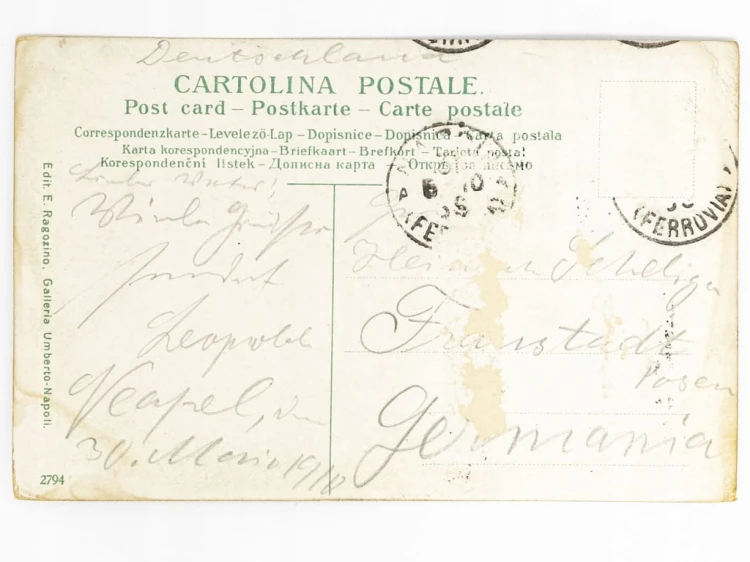 Deutschland
CARTOLINA POSTALE.
Post card – Postkarte – Carte postale
Correspondenzkarte – Levelező-Lap – Dopisnice – Dopisnica – Carta postala
Karta korespondencyjna – Briefkaart – Brefkort – Tarjeta postal
Korespondenční lístek – Дописна карта –
Edit. E. Ragozino, Galleria Umberto-Napoli.
Lieber Vater!
Viele Grüsse
sendet
Leopold
Neapel, den
30. 1910
Fraustadt
Posen
Germania
(FERROVIA)
2794